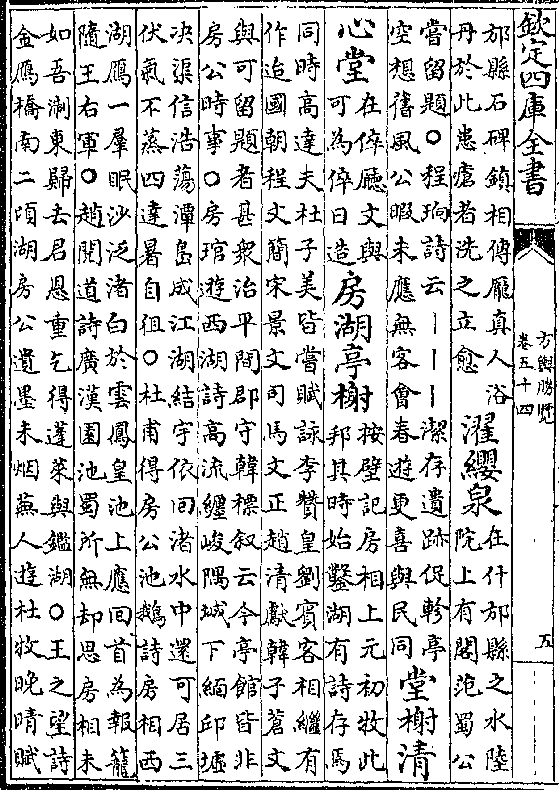 欽定四庫全書
方輿勝覽
卷五十四
五
邡縣石碑鎮相傳龎真人浴
丹於此患瘡者洗之立愈
濯纓泉
在什邡縣之水陸
院上有閣范蜀公
嘗留題○程珣詩云丨丨丨潔存遺跡促軫亭
空想舊風公暇未應無客會春遊更喜與民同
堂榭清
心堂
在倅廳文與
可為倅日造
房湖亭榭
按壁記房相上元初牧此
邦其時始鑿湖有詩存焉
同時高達夫杜子美皆嘗賦詠李贊皇劉賓客相繼有
作迨國朝程文簡宋景文司馬文正趙清獻韓子蒼文
與可留題者甚衆治平間郡守韓標叙云今亭館皆非
房公時事○房琯遊西湖詩高流纏峻隅城下緬邱墟
决渠信浩蕩潭島成江湖結宇依回渚水中還可居三
伏氣不蒸四達暑自徂○杜甫得房公池鵝詩房相西
湖鴈一羣眠沙泛渚白於雲鳳皇池上應回首為報籠
隨王右軍○趙閱道詩廣漢園池蜀所無却思房相未
如吾淛東歸去君恩重乞得蓬萊與鑑湖○王之望詩
金鴈橋南二頃湖房公遺墨未烟蕪人遊杜牧晚晴賦